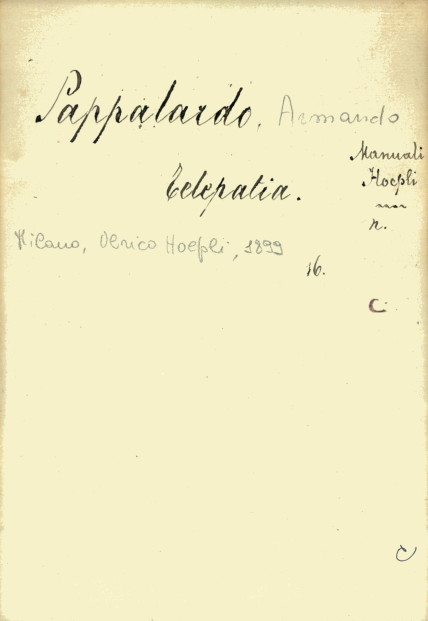 Pappalardo, Armando
Manuali
Hoepli
Telepatia.
n.
Milano, Ulrico Hoepli, 1899
16.
C
C